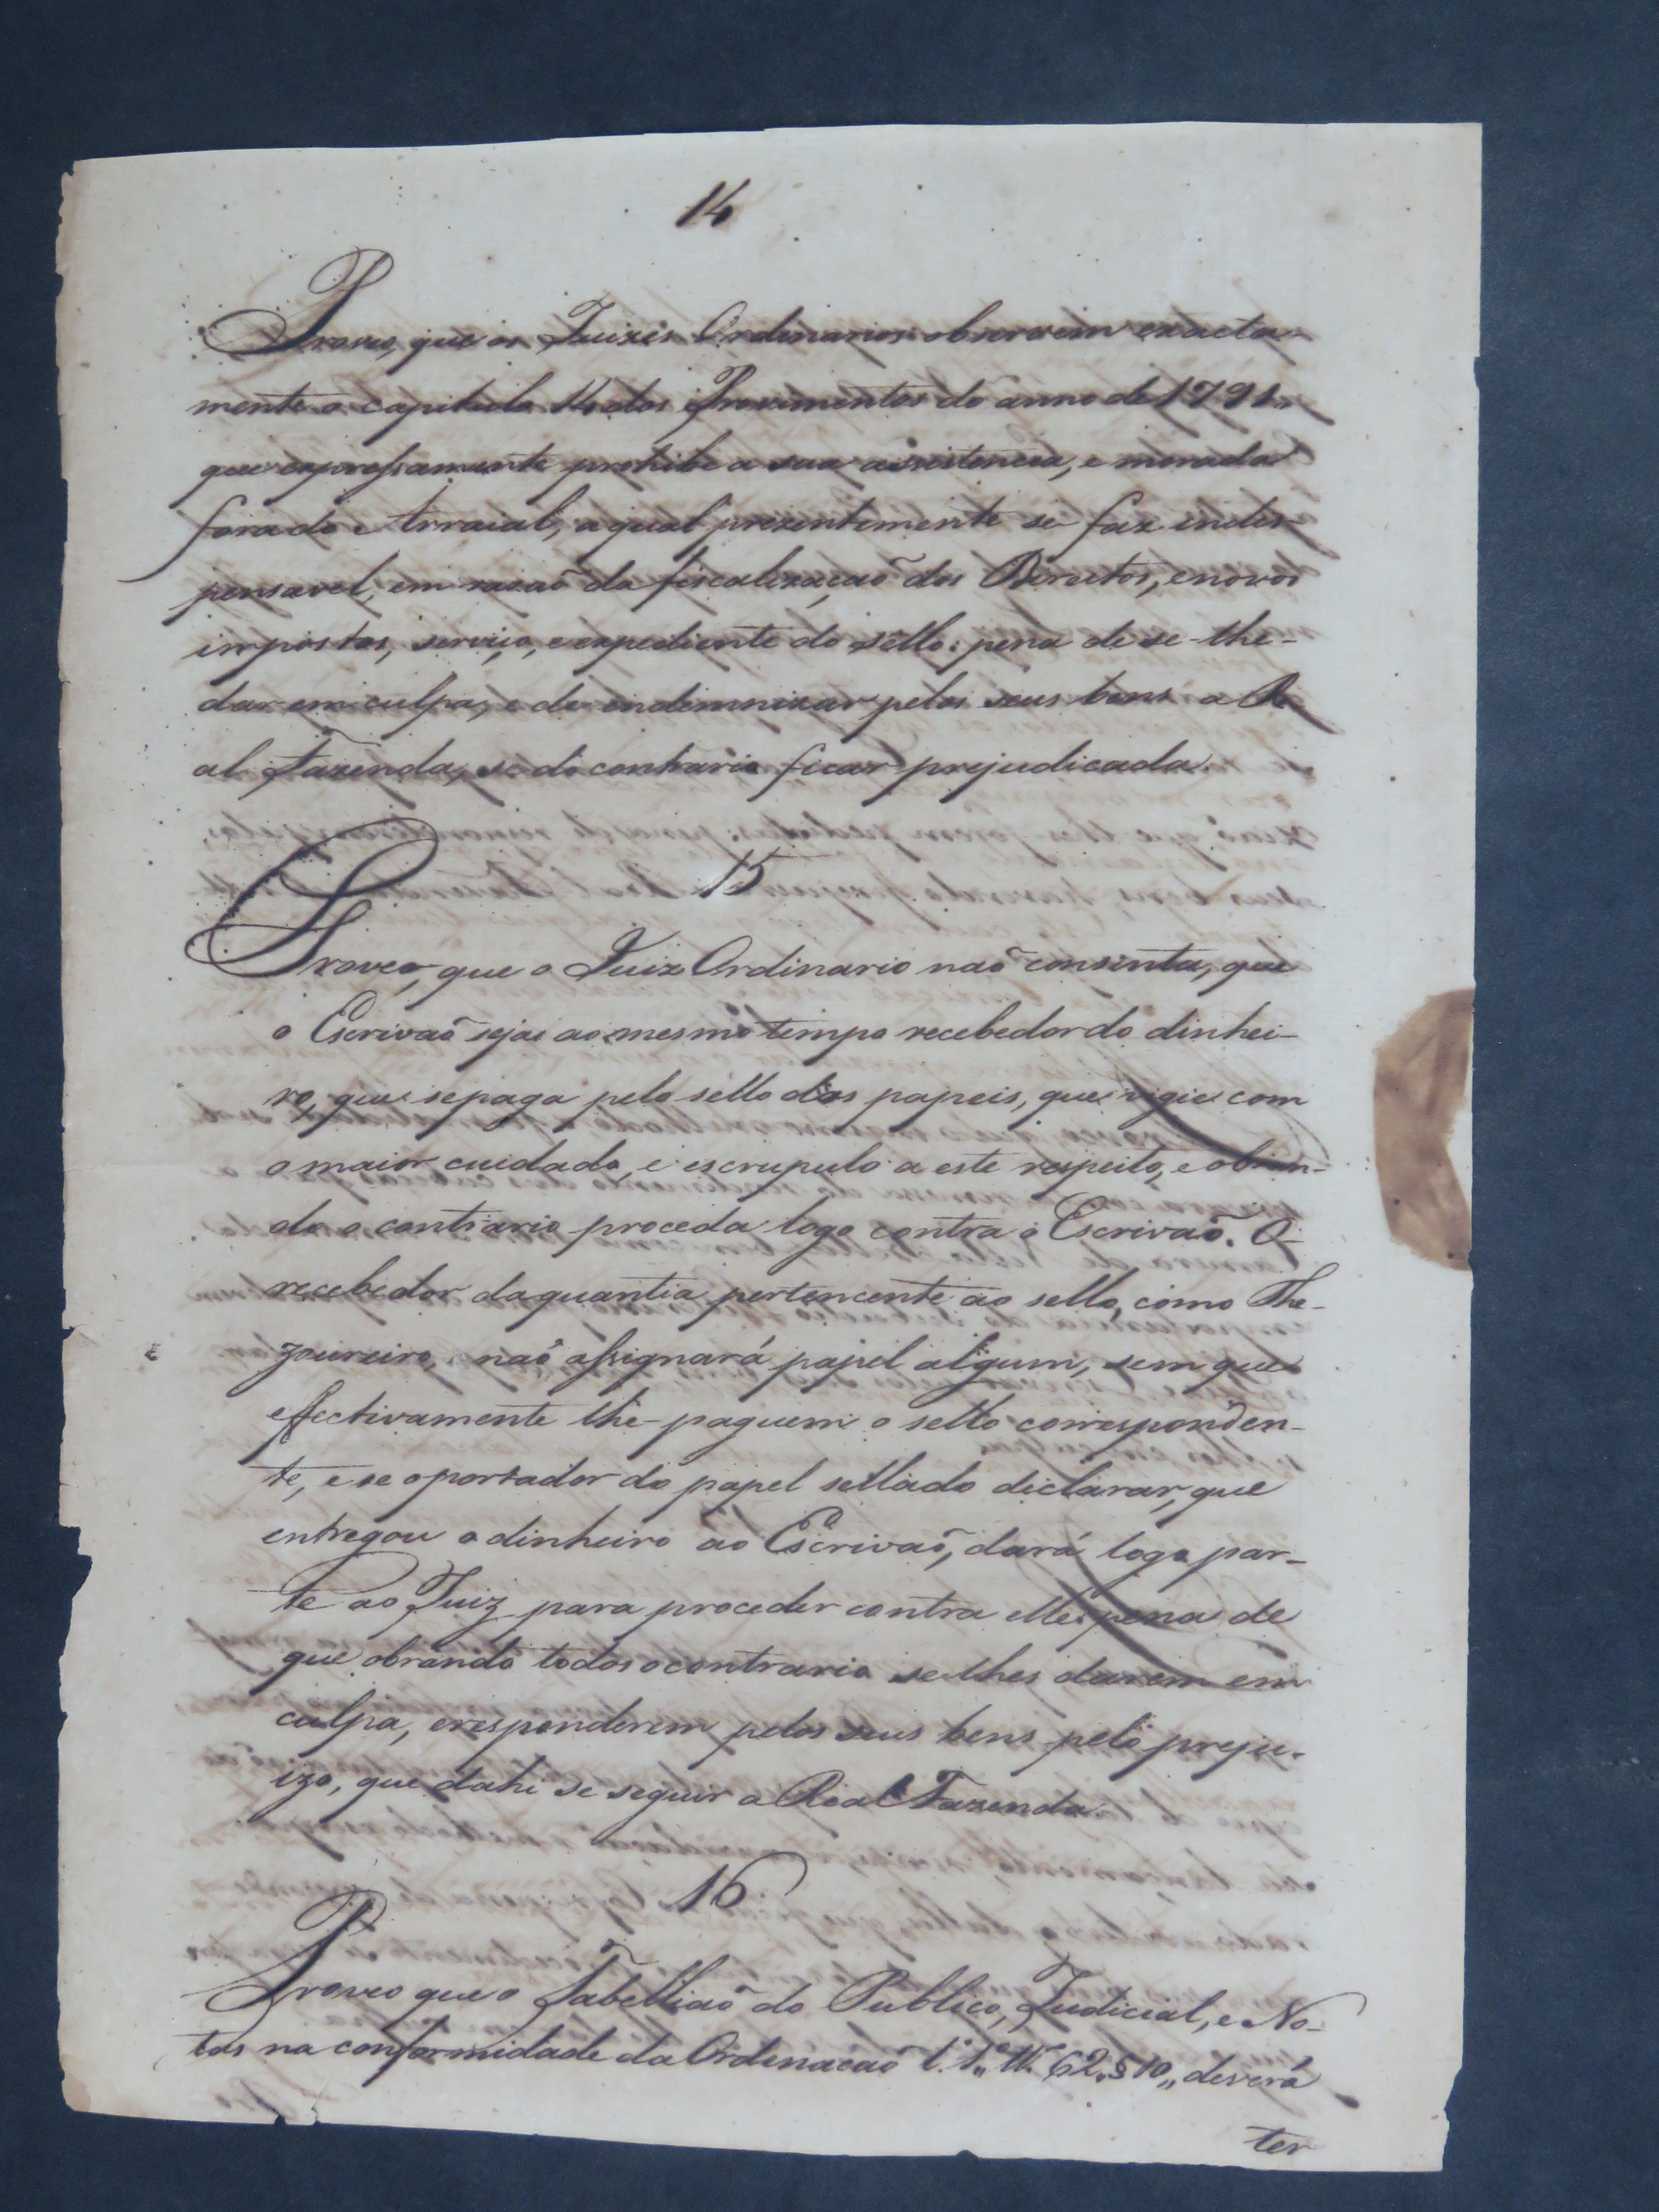 14
Proveo, que os Juizes Ordinarios observem exacta-
mente o capitulo 14 dos Provimentos do anno de 1791
que expressamente prohibe a sua assistencia, e morada
fora do Arraial, a qual prezentemente se faz indes-
pensavel, em razaõ da fiscalizaçaõ dos Direitos, e novos
impostos, serviço, e expediente do sello: pena de se lhe-
dar em culpa, e de indemnizar pelos seus bens a Re-
al Fazenda, se do contrario ficar prejudicada.
15
Proveo, que o Juiz Ordinario naõ consinta, que
o Escrivaõ seja ao mesmo tempo recebedor do dinhei-
ro, que se paga pelo sello dos papeis, que vigie com
o maior cuidado, e escrupulo a este respeito, e obran-
do o contrario proceda logo contra o Escrivaõ. O
recebedor da quantia pertencente ao sello, como The-
zoureiro, naõ assignará papel algum, sem que
effectivamente lhe paguem o sello corresponden-
te, e se o portador do papel sellado declarar, que
entregou o dinheiro ao Escrivaõ, dará logo par-
te ao Juiz para proceder contra elle: pena de
que obrando todos o contrario se lhes darem em
culpa, e responderem pelos seus bens pelo preju-
izo, que dahi se seguir a Real Fazenda.
16
Proveo que o Tabelliaõ do Publico, Judicial, e No-
tas na conformidade da Ordenacaõ l. 1.º tt.º 62 § 10,, deverá
ter